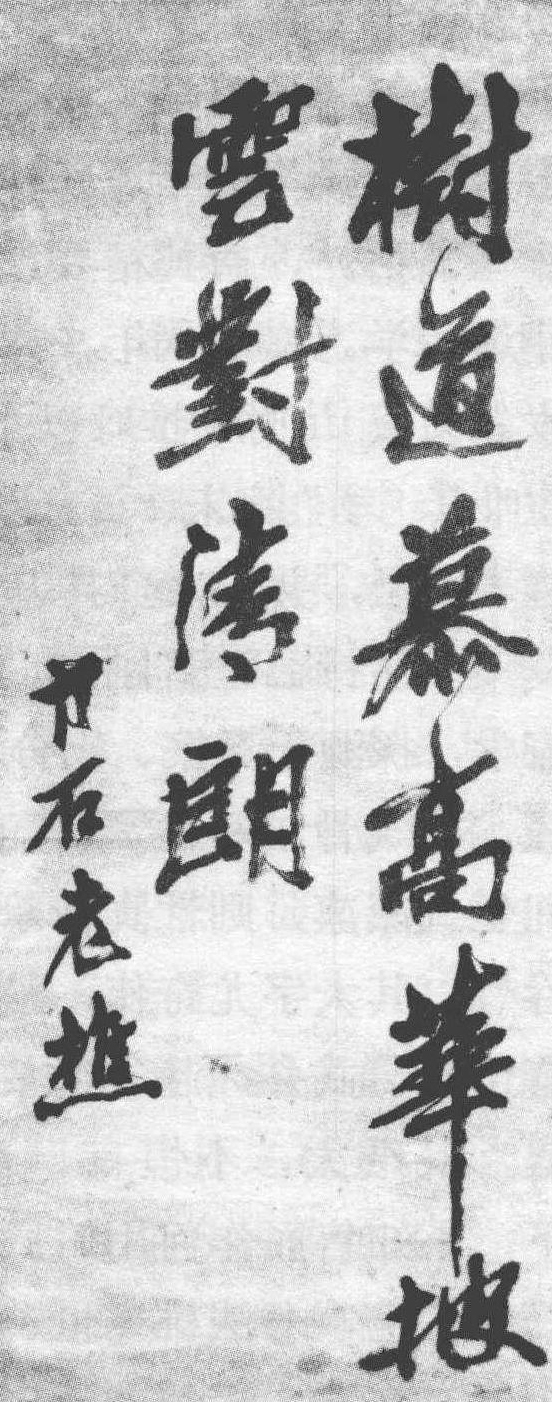 樹道慕高華披
雲對清朗
石老樵